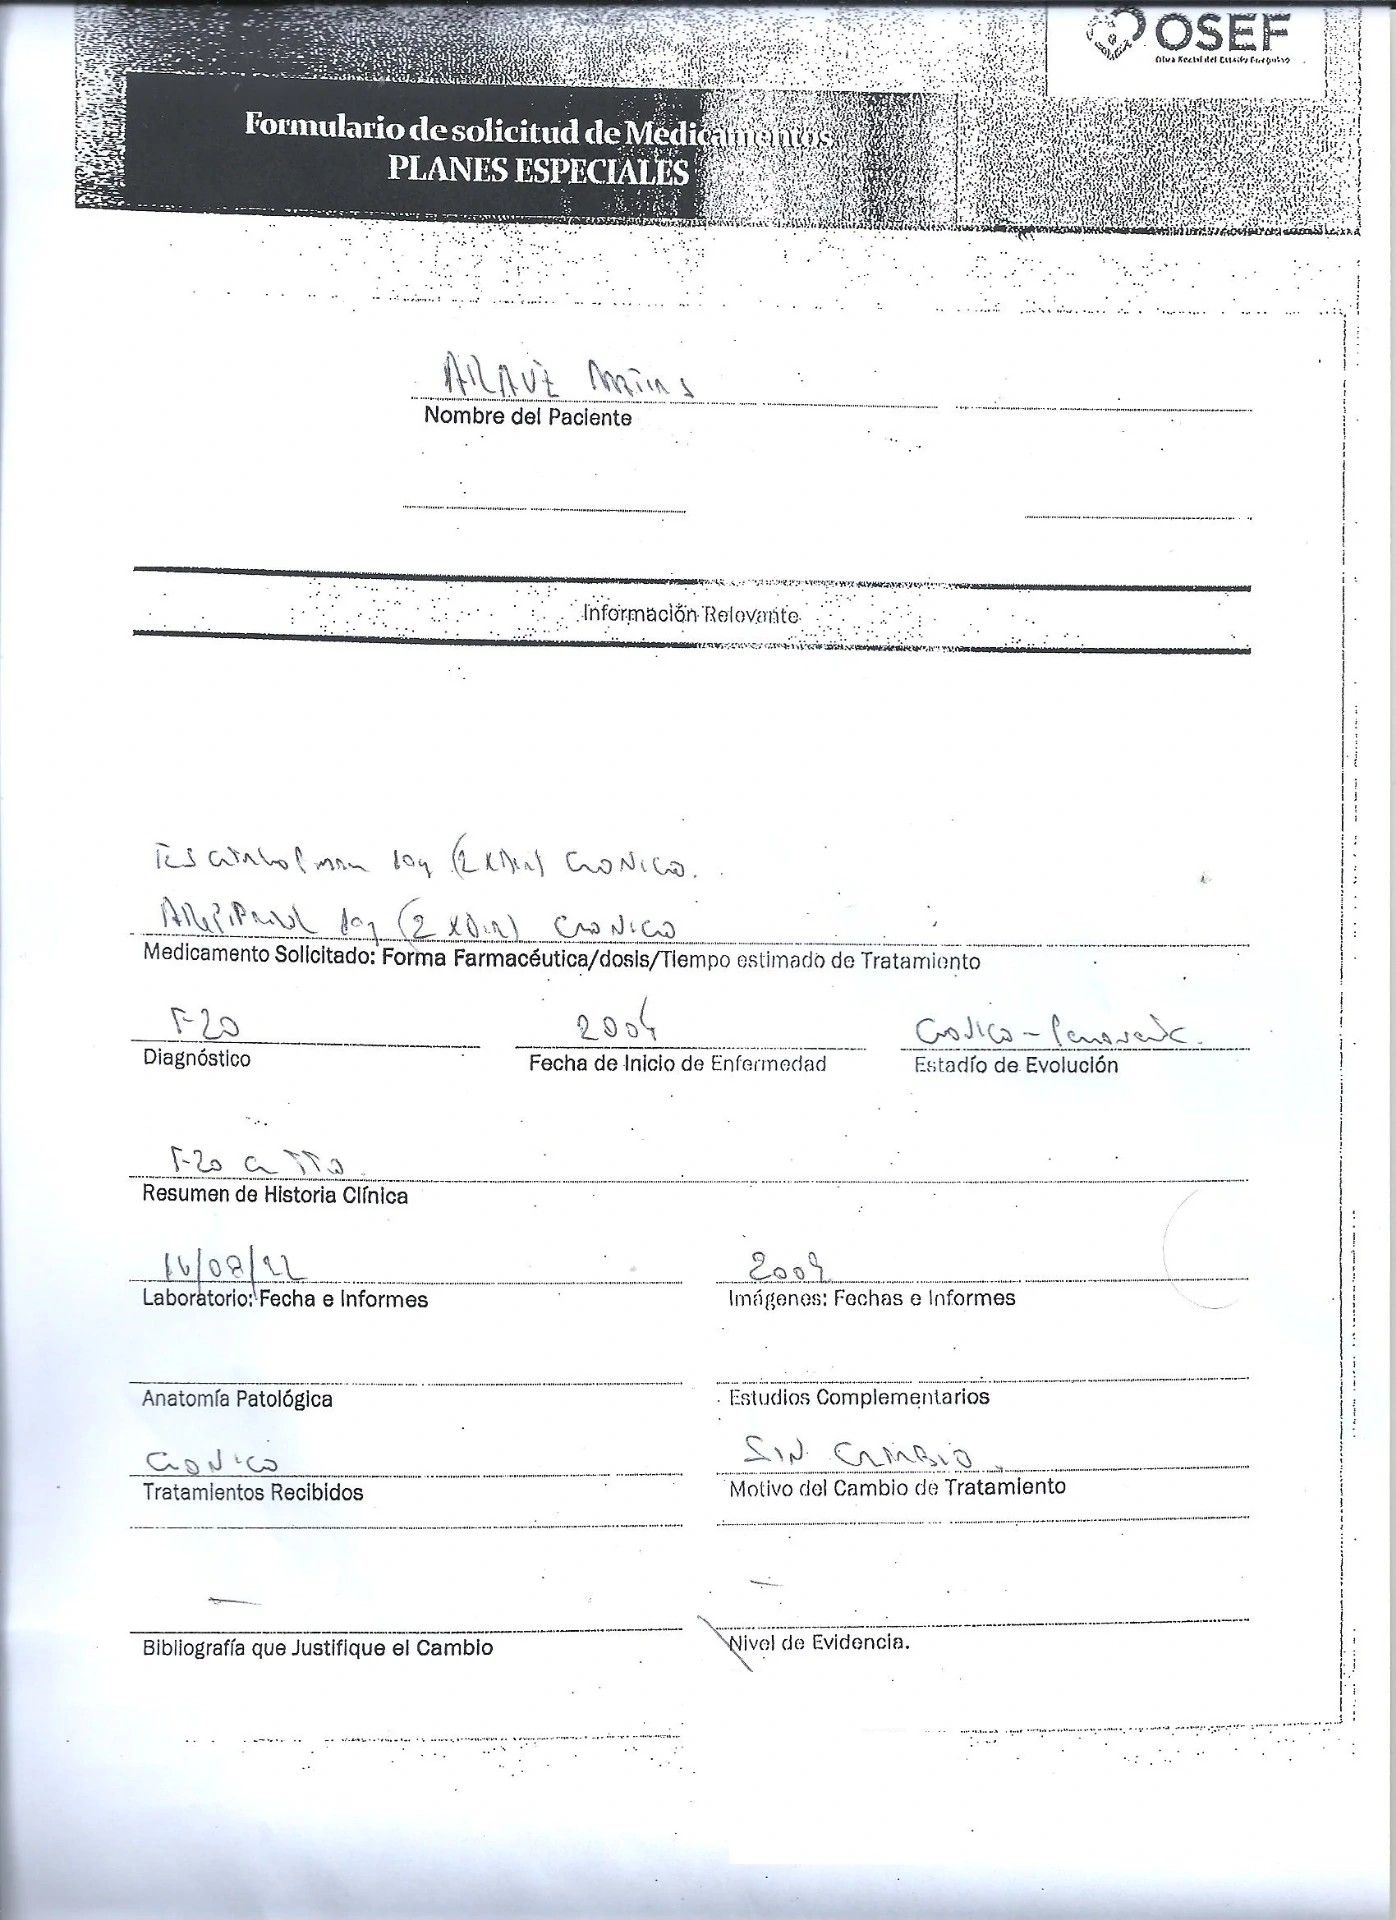 OSEF
Obra Social del Estado Fueguino
Formulario de solicitud de Medicamentos
PLANES ESPECIALES
ARAUZ
Nombre del Paciente
Información Relevante
10mg (2 XDIA) CRONICO.
10mg (2 XDIA) CRONICO
Medicamento Solicitado: Forma Farmacéutica/dosis/Tiempo estimado de Tratamiento
F-20 2004 CRONICO -
Diagnóstico Fecha de Inicio de Enfermedad Estadío de Evolución
F-20 TTO.
Resumen de Historia Clínica
16/08/22 2004
Laboratorio: Fecha e Informes Imágenes: Fechas e Informes
Anatomía Patológica Estudios Complementarios
CRONICO SIN CAMBIO.
Tratamientos Recibidos Motivo del Cambio de Tratamiento
Bibliografía que Justifique el Cambio Nivel de Evidencia.